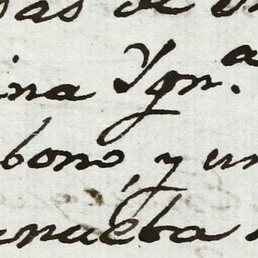 sas de
ina Ygn.ª
bono, y un
anueba